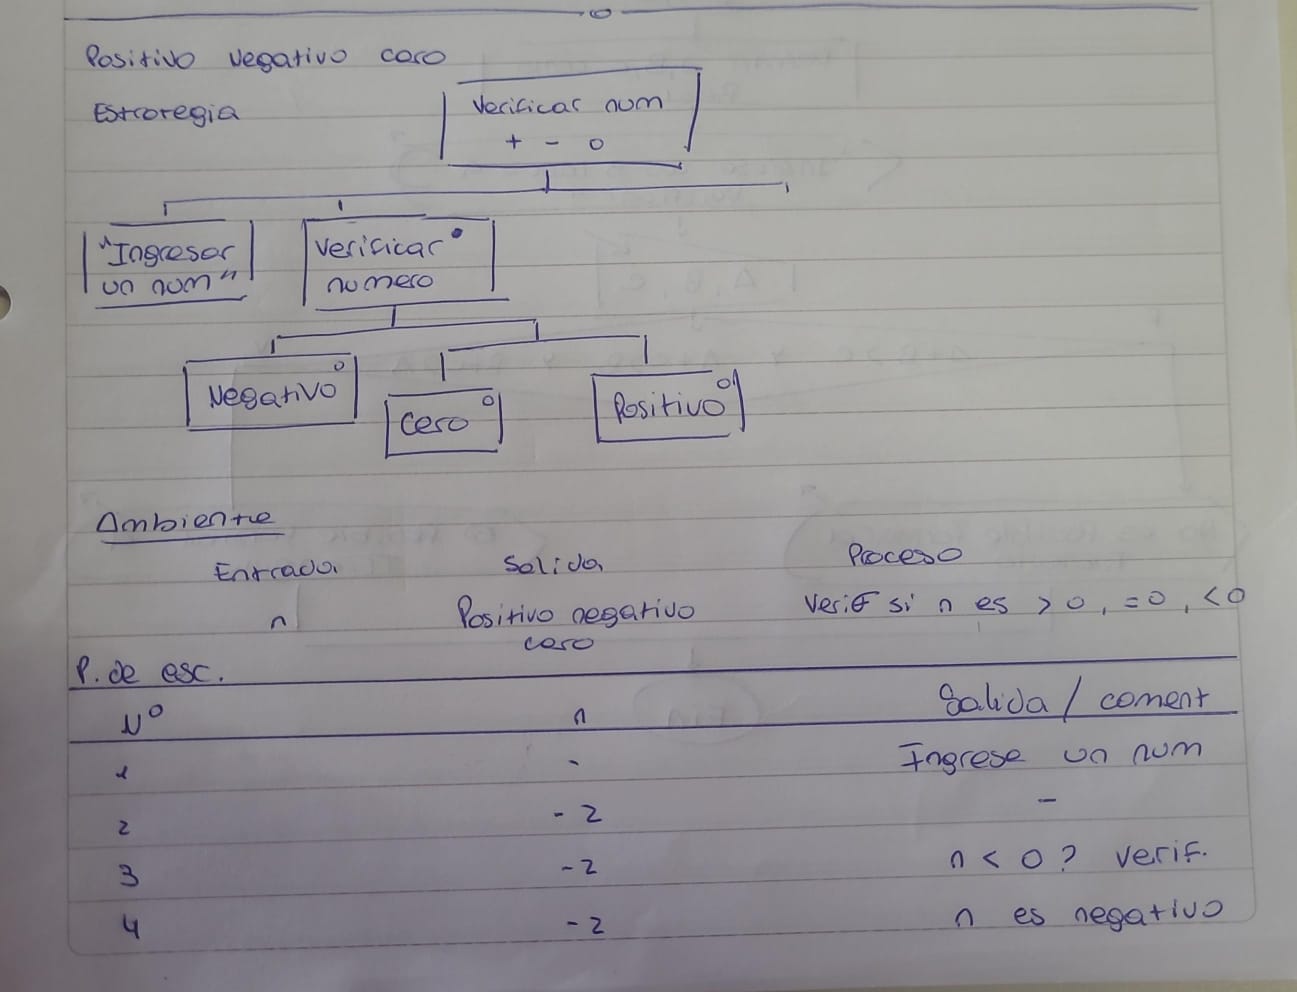 Positivo negativo cero
Estrategia
Verificar num
+ - 0
"Ingresar
un num"
Verificar
numero
Negativo
cero
Positivo
Ambiente
Entrada Salida Proceso
n Positivo negativo Verif si n es > 0, = 0, < 0
cero
P. de esc.
Nº n Salida / coment
1 - Ingrese un num
2 - 2 -
3 - 2 n < 0? verif.
4 - 2 n es negativo